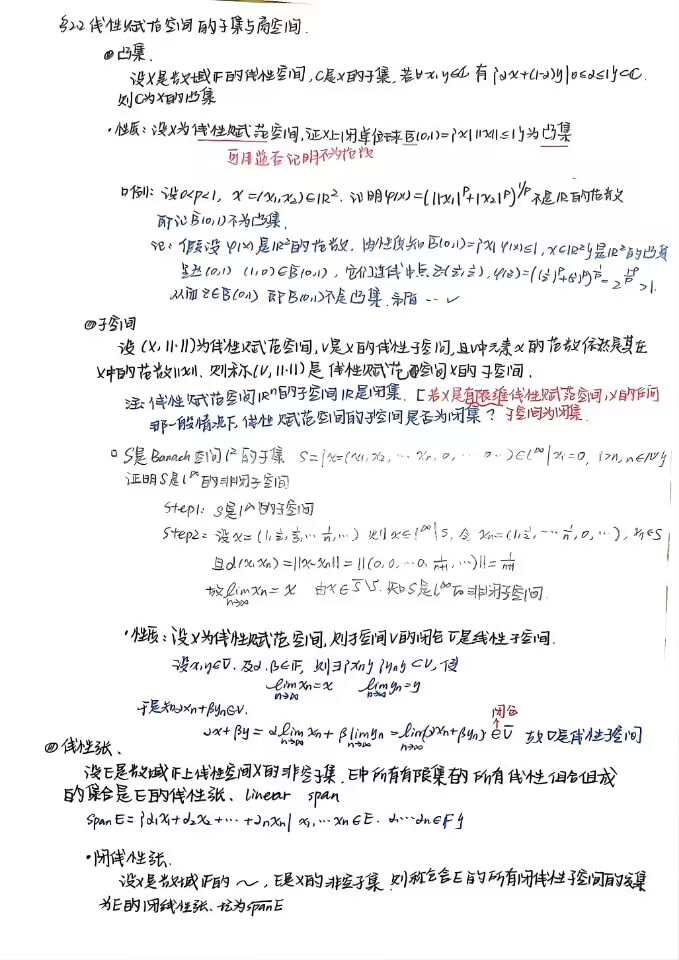 §2.2 线性赋范空间的子集与商空间.
①凸集.
设X是数域F的线性空间, C是X的子集. 若∀x,y∈C 有 {αx+(1-α)y|0≤α≤1}⊂C.
则C为X的凸集
·性质: 设X为线性赋范空间, 证X上闭单位球 B̄(0,1)={x| ||x||≤1}为凸集
可用逆否证明不为范数
□例: 设0<p<1, x=(x₁,x₂)∈R². 证明φ(x)=(|x₁|^p+|x₂|^p)^{1/p} 不是R的范数
即证B̄(0,1)不为凸集.
证: 假设φ(x)是R²的范数, 由性质知 B̄(0,1)={x| φ(x)≤1, x∈R²}是R²的凸集
(0,1) (1,0)∈B̄(0,1), 它们连线中点 z(½,½), φ(z)=((½)^p+(½)^p)^{1/p}=2^{(1-p)/p}>1.
从而z∉B̄(0,1) 即B̄(0,1)不是凸集. 矛盾 … ✓
②子空间
设(X,||·||)为线性赋范空间, V是X的线性子空间, 且V中元素x的范数依然是其在
X中的范数||x||. 则称(V,||·||)是线性赋范空间X的子空间.
注: 线性赋范空间Rⁿ的子空间R是闭集. [若X是有限维线性赋范空间, X的任何
那一般情况下, 线性赋范空间的子空间是否为闭集? 子空间为闭集.
□ S是Banach空间l^∞的子集 S={x=(x₁,x₂,…xₙ,0,…0…)∈l^∞|xᵢ=0, i>n, n∈N}
证明S是l^∞的非闭子空间
Step1: S是l^∞的子空间
Step2: 设x=(1,½,⅓,…1/n,…) 则x∈l^∞\S, 令 xₙ=(1,½,…1/n,0,…), xₙ∈S
且d(x,xₙ)=||x-xₙ||=||(0,0,…0,1/(n+1),…)||=1/(n+1)
故lim_{n→∞}xₙ=x 由x∈S̄\S. 知S是l^∞的非闭子空间.
·性质: 设X为线性赋范空间, 则子空间V的闭包V̄是线性子空间.
设x,y∈V̄. 及α,β∈F, 则∃{xₙ},{yₙ}⊂V, 使
lim_{n→∞}xₙ=x lim_{n→∞}yₙ=y
于是知αxₙ+βyₙ∈V. 闭包
αx+βy=α lim_{n→∞}xₙ+β lim_{n→∞}yₙ=lim_{n→∞}(αxₙ+βyₙ)∈V̄ 故V̄是线性子空间
线性张、
设E是数域F上线性空间X的非空子集. E中所有有限集的所有线性组合组成
的集合是E的线性张、linear span
span E={α₁x₁+α₂x₂+…+αₙxₙ| x₁,…xₙ∈E. α₁…αₙ∈F}
·闭线性张.
设X是数域F的~, E是X的非空子集. 则称包含E的所有闭线性子空间的交集
为E的闭线性张、记为span̅E